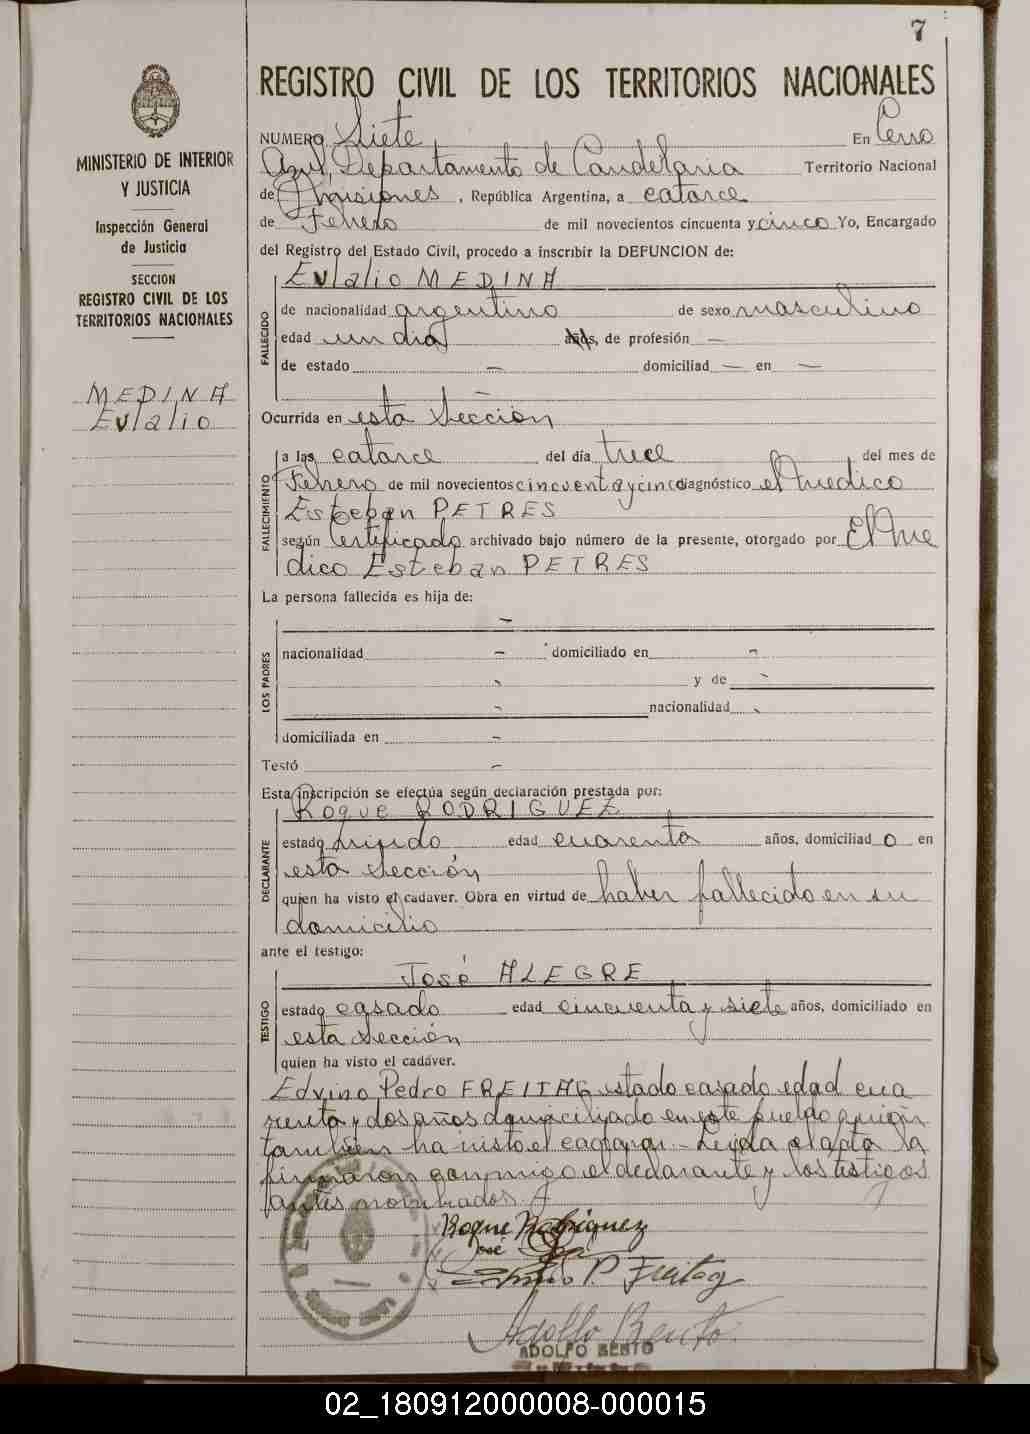 7
REGISTRO CIVIL DE LOS TERRITORIOS NACIONALES
MINISTERIO DE INTERIOR
Y JUSTICIA
Inspección General
de Justicia
SECCION
REGISTRO CIVIL DE LOS
TERRITORIOS NACIONALES
MEDINA
Eulalio
NUMERO Siete En Cerro
Azul, Departamento de Candelaria Territorio Nacional
de Misiones, República Argentina, a catorce
de Febrero de mil novecientos cincuenta y cinco Yo, Encargado
del Registro del Estado Civil, procedo a inscribir la DEFUNCION de:
Eulalio MEDINA
FALLECIDO
de nacionalidad argentino de sexo masculino
edad un dia años, de profesión —
de estado — domiciliad — en —
—
Ocurrida en esta Sección
FALLECIMIENTO
a las catorce del día trece del mes de
Febrero de mil novecientos cincuenta y cinco diagnóstico el Medico
Esteban PETRES
según Certificado archivado bajo número de la presente, otorgado por El Me
dico Esteban PETRES
La persona fallecida es hija de:
—
LOS PADRES
nacionalidad — domiciliado en —
— y de —
— nacionalidad —
domiciliada en —
Testó —
Esta inscripción se efectúa según declaración prestada por:
Roque RODRIGUEZ
DECLARANTE
estado viudo edad cuarenta años, domiciliad o en
esta Sección
quien ha visto el cadaver. Obra en virtud de haber fallecido en su
domicilio
ante el testigo:
José ALEGRE
TESTIGO
estado casado edad cincuenta y siete años, domiciliado en
esta Sección
quien ha visto el cadáver.
Edvino Pedro FREITAG estado casado edad cua
renta y dos años domiciliado en este pueblo quien
tambien ha visto el cadaver.- Leida el acta la
firmaron conmigo el declarante y los testigos
antes nombrados
Roque Rodriguez
José
P. Freitag
Adolfo Bento
ADOLFO BENTO
02_180912000008-000015